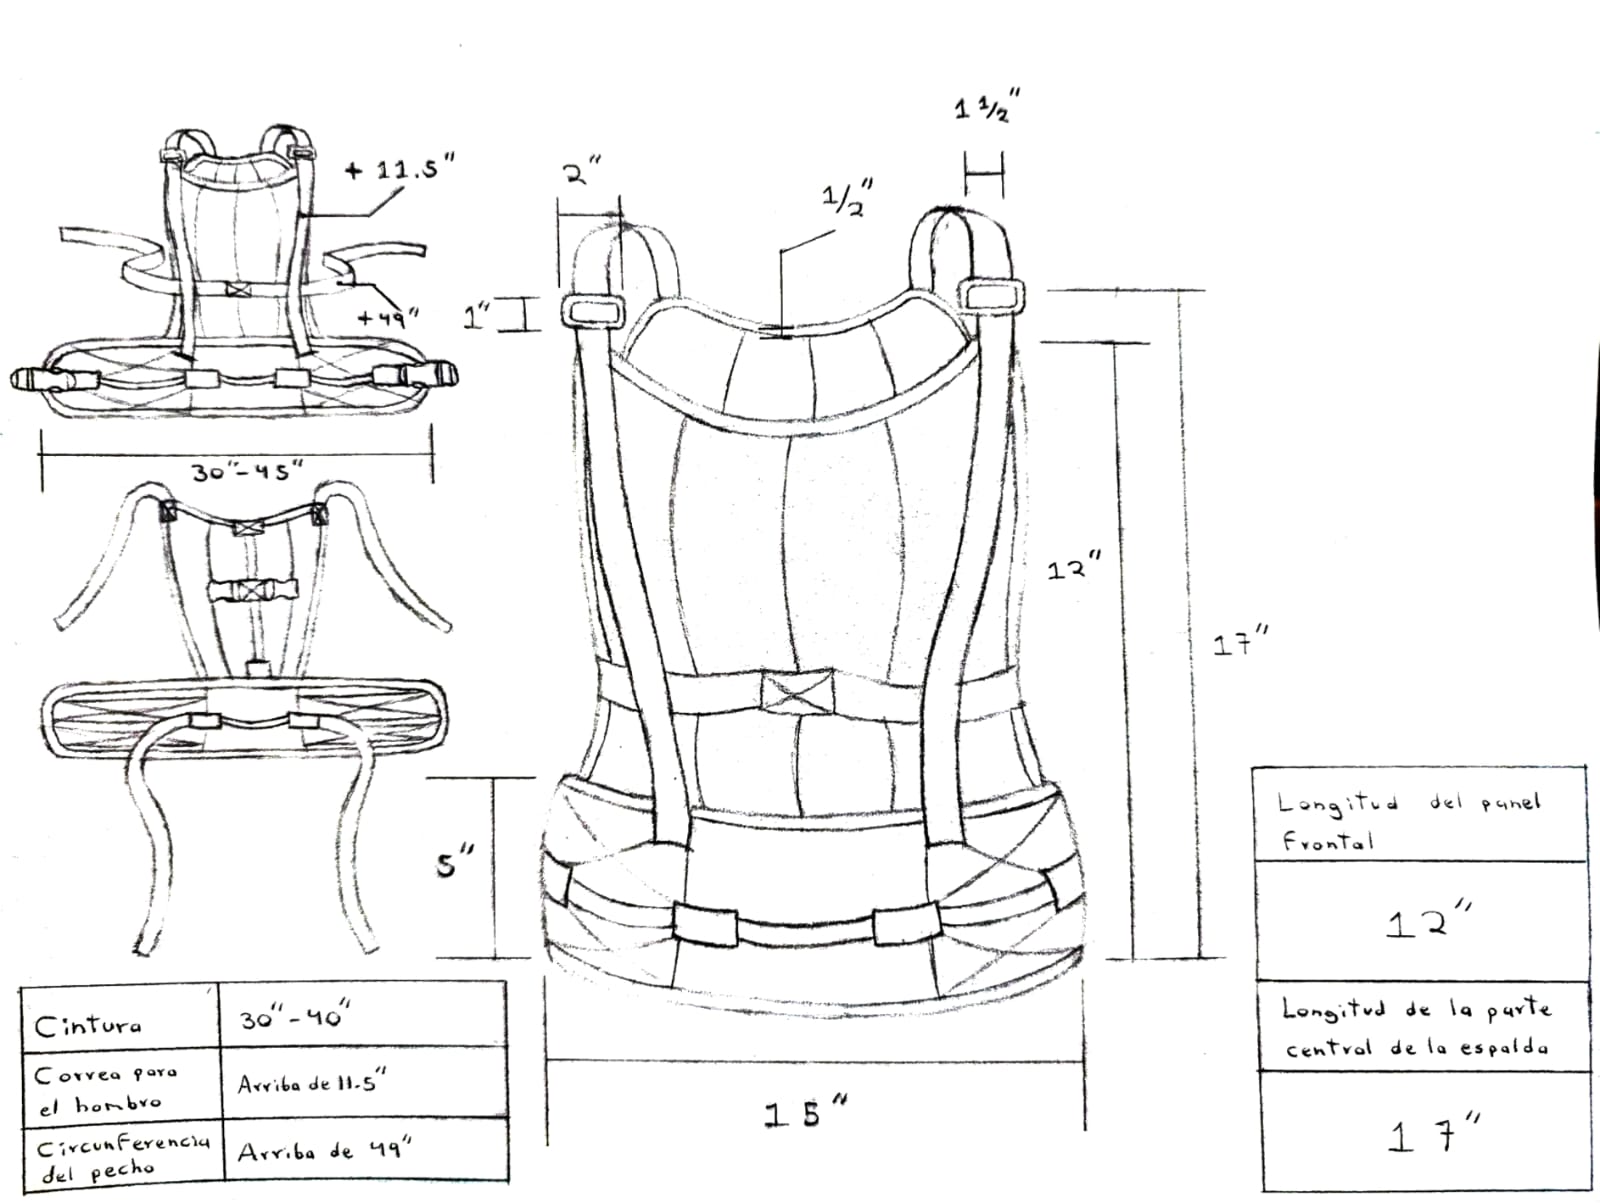 1 1/2"
2"
1/2"
+ 11.5"
1"
+49"
30"-45"
12"
17"
5"
15"
Cintura
30"-40"
Correa para
el hombro
Arriba de 11.5"
Circunferencia
del pecho
Arriba de 49"
Longitud del panel
frontal
12"
Longitud de la parte
central de la espalda
17"